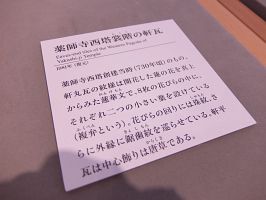 薬師寺西塔裳階の軒瓦
Eaves-end tiles of the Western Pagoda of
Yakushi-ji Temple
薬師寺西塔創建当初(730年頃)のもの。
軒丸瓦の紋様は開花した蓮の花を真上
からみた蓮華文で、8枚の花びらの中に、
それぞれ二つの小さい葉を設けている
(複弁という)。花びらの回りには珠紋、さ
らに外縁に鋸歯紋を巡らせている。軒平
瓦は中心飾りは唐草である。